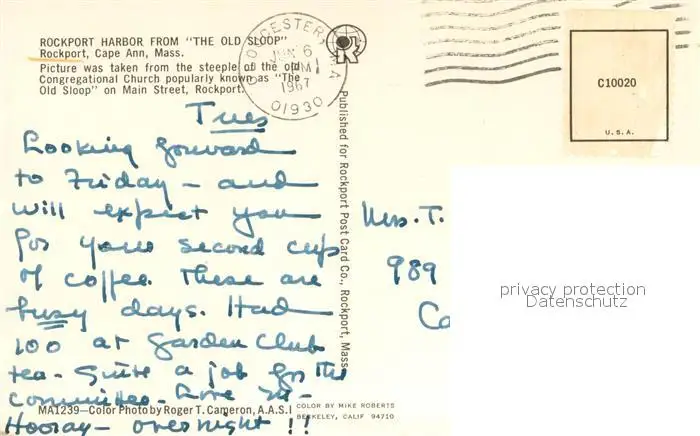 ROCKPORT HARBOR FROM "THE OLD SLOOP"
Rockport, Cape Ann, Mass.
Picture was taken from the steeple of the old
Congregational Church popularly known as "The
Old Sloop" on Main Street, Rockport.
GLOUCESTER, MA
JUN 6
PM
1967
01930
C10020
U.S.A.
Tues
Looking forward
to Friday - and
will expect you
for your second cup
of coffee. These are
busy days. Had
100 at Garden Club
tea. Quite a job for the
committee.
Hooray - overnight !!
Published for Rockport Post Card Co., Rockport, Mass.
Mrs. T.
989
Ca
privacy protection
Datenschutz
MA1239—Color Photo by Roger T. Cameron, A.A.S.I
COLOR BY MIKE ROBERTS
BERKELEY, CALIF 94710